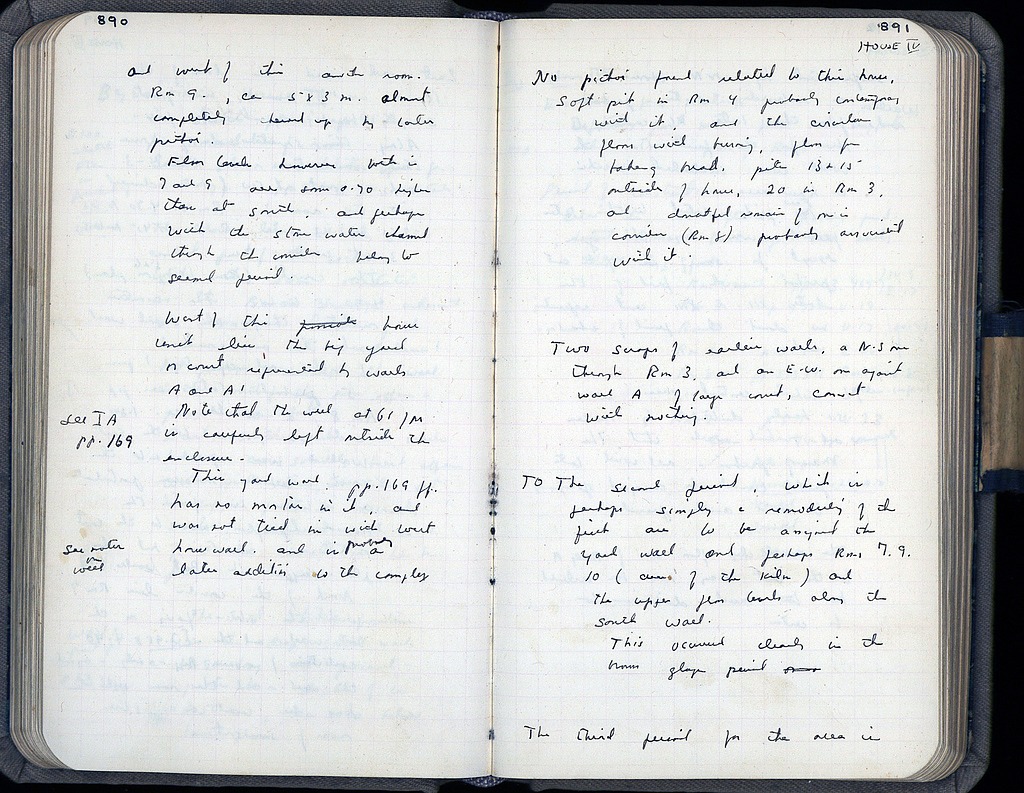 890
and west of this another room.
Rm 9., ca 5 x 3 m. almost
completely chewed up by later
pithoi.
Floor levels however both in
7 and 9 are some 0.70 higher
than at south, and perhaps
with the stone water channel
through the corridor belong to
second period.
West of this house
unit lies the big yard
or court represented by walls
A and A'
see IA
pp. 169
Note that the well at 61/
is carefully left outside the
enclosure.
This yard wall, pp. 169 ff.
has no mortar in it, and
was not tied in with west
house wall. and is probably a
see notes
on
west
later addition to the complex
891
HOUSE IV
No pithoi found related to this house,
soft pit in Rm 4 probably contemporary
with it, and the circular
floors with burning, floors for
baking bread, pits 13 + 15
outside of house, 20 in Rm 3,
and doubtful remains of one in
corridor (Rm 8) probably associated
with it.
Two scraps of earlier walls, a N-S one
through Rm 3, and an E-W. one against
wall A of large court, connect
with nothing.
To The second period, which is
perhaps simply a remodeling of the
first are to be assigned the
yard wall and perhaps Rms 7. 9.
10 ( of the kiln) and
the upper floor levels along the
south wall.
This occurred clearly in the
brown glaze period
The third period for the area is